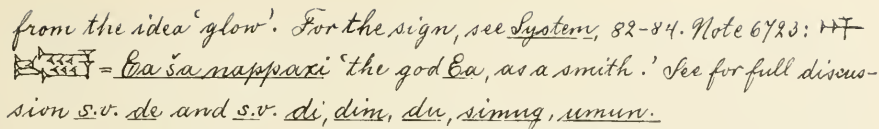 from the idea ‘glow’. For the sign, see System, 82-84. Note 6723: 𒀭
= Ea ša nappaxi ‘the god Ea, as a smith.’ See for full discus-
sion s.v. de and s.v. di, dim, du, simug, umun.